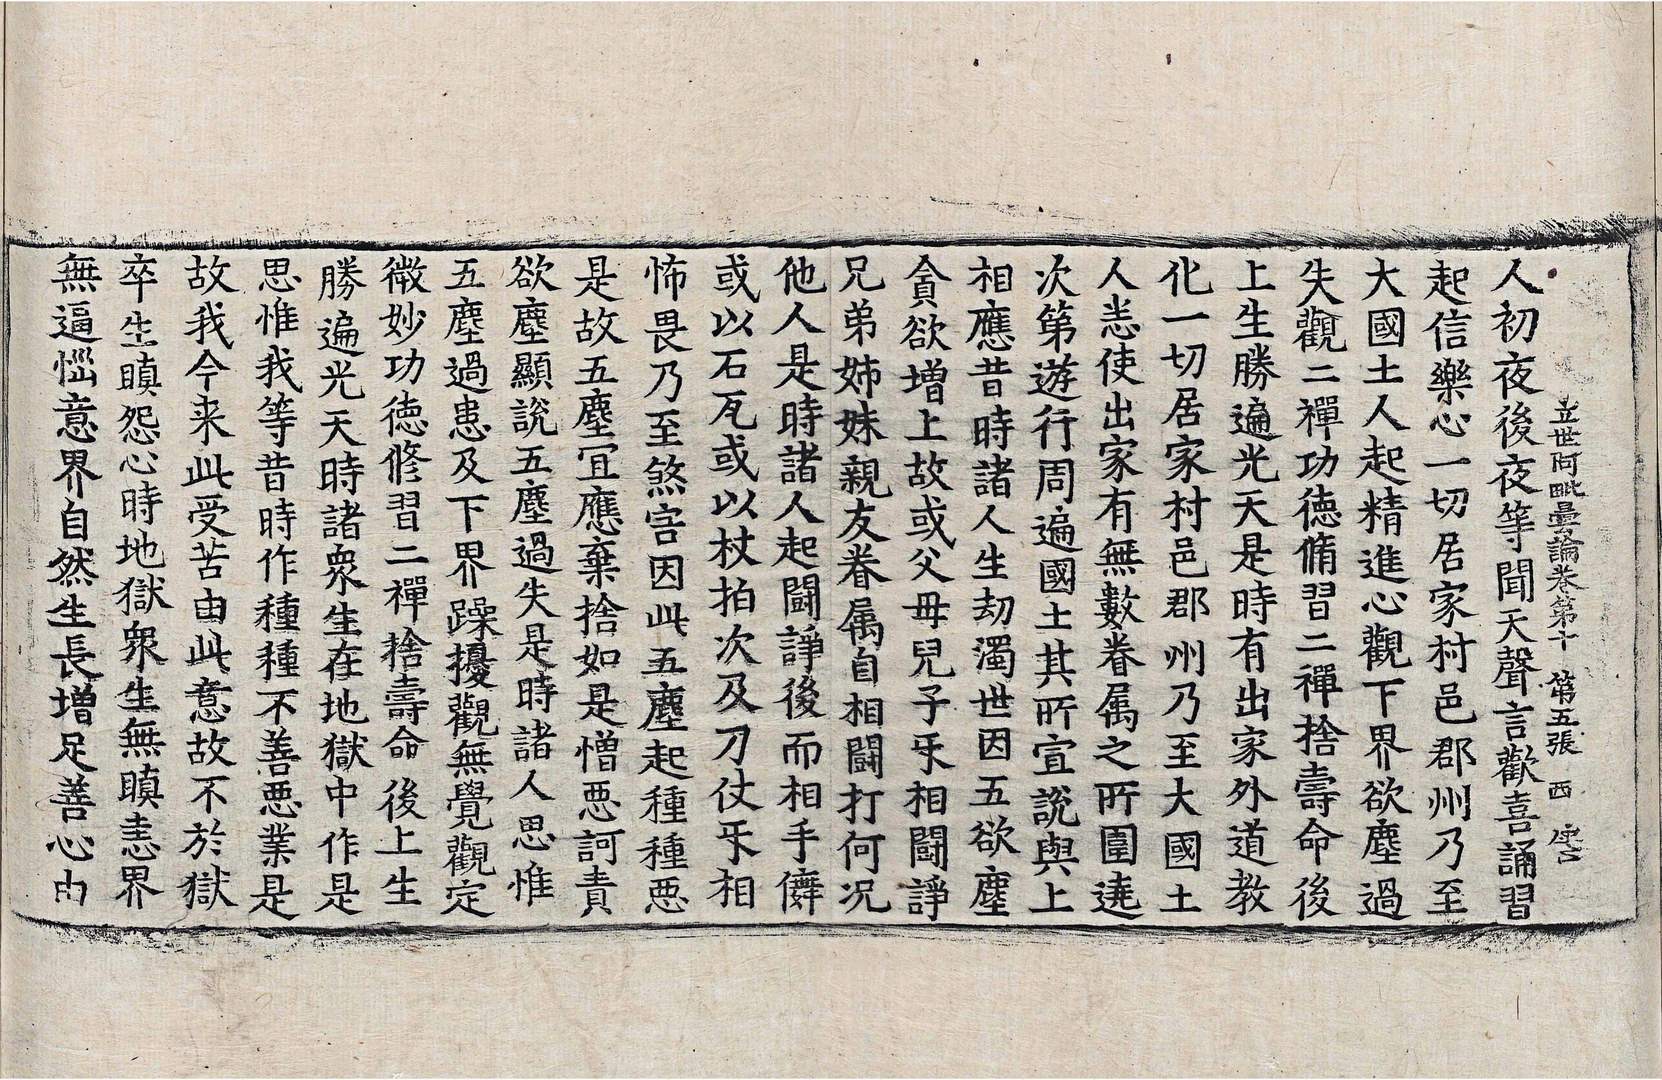 立世阿毗曇論卷第十 第五張 西
人初夜後夜等聞天聲言歡喜誦習
起信樂心一切居家村邑郡州乃至
大國土人起精進心觀下界欲塵過
失觀二禪功德脩習二禪捨壽命後
上生勝遍光天是時有出家外道教
化一切居家村邑郡州乃至大國土
人恙使出家有無數眷属之所圍遶
次第遊行周遍國土其所宣說與上
相應昔時諸人生劫濁世因五欲塵
貪欲增上故或父母兒子㸦相鬪諍
兄弟姊妹親友眷属自相鬪打何况
他人是時諸人起鬪諍後而相手儛
或以石瓦或以杖拍次及刀仗㸦相
怖畏乃至煞害因此五塵起種種惡
是故五塵宜應棄捨如是憎惡訶責
欲塵顯說五塵過失是時諸人思惟
五塵過患及下界躁擾觀無覺觀定
微妙功德修習二禪捨壽命後上生
勝遍光天時諸衆生在地獄中作是
思惟我等昔時作種種不善惡業是
故我今来此受苦由此意故不於獄
卒生瞋怨心時地獄衆生無瞋恚界
無逼惱意界自然生長增足善心由